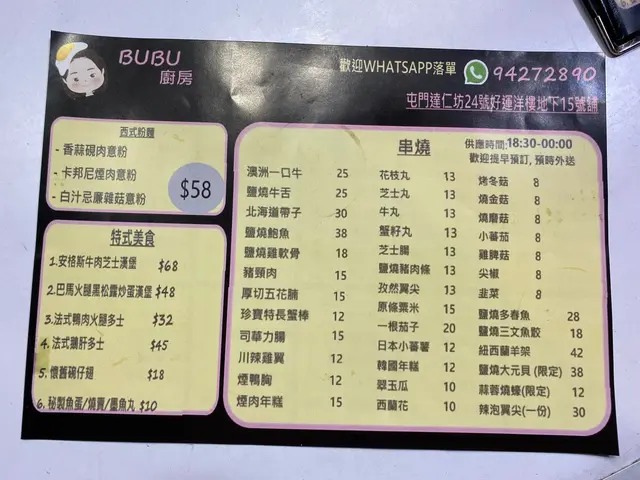 BUBU
廚房
歡迎WHATSAPP落單 94272890
屯門達仁坊24號好運洋樓地下15號舖
西式粉麵
- 香蒜硯肉意粉
- 卡邦尼煙肉意粉
- 白汁忌廉雜菇意粉
$58
特式美食
1.安格斯牛肉芝士漢堡 $68
2.巴馬火腿黑松露炒蛋漢堡 $48
3.法式鴨肉火腿多士 $32
4.法式鵝肝多士 $45
5. 懷舊碗仔翅 $18
6. 秘製魚蛋/燒賣/墨魚丸 $10
串燒
供應時間:18:30-00:00
歡迎提早預訂, 預時外送
澳洲一口牛 25
鹽燒牛舌 25
北海道帶子 30
鹽燒鮑魚 38
鹽燒雞軟骨 18
豬頸肉 15
厚切五花腩 15
珍寶特長蟹棒 12
司華力腸 15
川辣雞翼 12
煙鴨胸 12
煙肉年糕 15
花枝丸 13
芝士丸 13
牛丸 13
蟹籽丸 13
芝士腸 13
鹽燒豬肉條 13
孜然翼尖 13
原條粟米 15
一根茄子 20
日本小蕃薯 12
韓國年糕 12
翠玉瓜 10
西蘭花 10
烤冬菇 8
燒金菇 8
燒磨菇 8
小蕃茄 8
雞脾菇 8
尖椒 8
韭菜 8
鹽燒多春魚 28
鹽燒三文魚骹 18
紐西蘭羊架 42
鹽燒大元貝 (限定) 38
蒜蓉燒蠔(限定) 12
辣泡翼尖(一份) 30